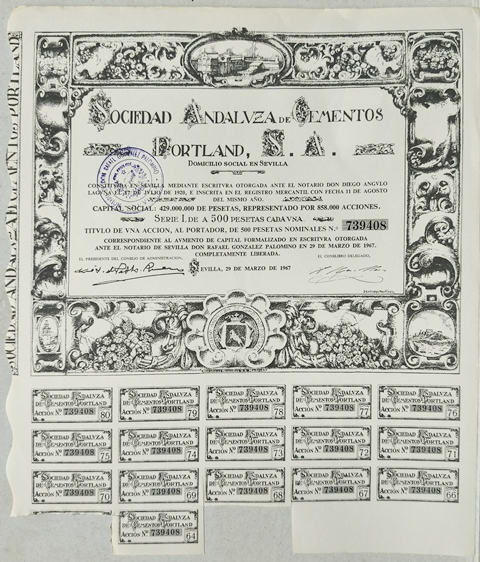 SOCIEDAD ANDALVZA DE CEMENTOS
PORTLAND, S. A.
DOMICILIO SOCIAL EN SEVILLA
CONSTITVIDA EN SEVILLA MEDIANTE ESCRITVRA OTORGADA ANTE EL NOTARIO DON DIEGO ANGVLO
LAGVNA EL 17 DE JVLIO DE 1920, E INSCRITA EN EL REGISTRO MERCANTIL CON FECHA 11 DE AGOSTO
DEL MISMO AÑO.
CAPITAL SOCIAL: 429.000.000 DE PESETAS, REPRESENTADO POR 858.000 ACCIONES.
SERIE I. DE A 500 PESETAS CADA VNA
TITVLO DE VNA ACCION, AL PORTADOR, DE 500 PESETAS NOMINALES N.º 739408
CORRESPONDIENTE AL AVMENTO DE CAPITAL FORMALIZADO EN ESCRITVRA OTORGADA
ANTE EL NOTARIO DE SEVILLA DON RAFAEL GONZALEZ PALOMINO EN 29 DE MARZO DE 1967.
COMPLETAMENTE LIBERADA.
EL PRESIDENTE DEL CONSEJO DE ADMINISTRACION,
EL CONSEJERO DELEGADO,
SEVILLA, 29 DE MARZO DE 1967
SOCIEDAD ANDALVZA
DE CEMENTOS PORTLAND
ACCIÓN Nº 739408 80
SOCIEDAD ANDALVZA
DE CEMENTOS PORTLAND
ACCIÓN Nº 739408 79
SOCIEDAD ANDALVZA
DE CEMENTOS PORTLAND
ACCIÓN Nº 739408 78
SOCIEDAD ANDALVZA
DE CEMENTOS PORTLAND
ACCIÓN Nº 739408 77
SOCIEDAD ANDALVZA
DE CEMENTOS PORTLAND
ACCIÓN Nº 739408 76
SOCIEDAD ANDALVZA
DE CEMENTOS PORTLAND
ACCIÓN Nº 739408 75
SOCIEDAD ANDALVZA
DE CEMENTOS PORTLAND
ACCIÓN Nº 739408 74
SOCIEDAD ANDALVZA
DE CEMENTOS PORTLAND
ACCIÓN Nº 739408 73
SOCIEDAD ANDALVZA
DE CEMENTOS PORTLAND
ACCIÓN Nº 739408 72
SOCIEDAD ANDALVZA
DE CEMENTOS PORTLAND
ACCIÓN Nº 739408 71
SOCIEDAD ANDALVZA
DE CEMENTOS PORTLAND
ACCIÓN Nº 739408 70
SOCIEDAD ANDALVZA
DE CEMENTOS PORTLAND
ACCIÓN Nº 739408 69
SOCIEDAD ANDALVZA
DE CEMENTOS PORTLAND
ACCIÓN Nº 739408 68
SOCIEDAD ANDALVZA
DE CEMENTOS PORTLAND
ACCIÓN Nº 739408 67
SOCIEDAD ANDALVZA
DE CEMENTOS PORTLAND
ACCIÓN Nº 739408 66
SOCIEDAD ANDALVZA
DE CEMENTOS PORTLAND
ACCIÓN Nº 739408 64